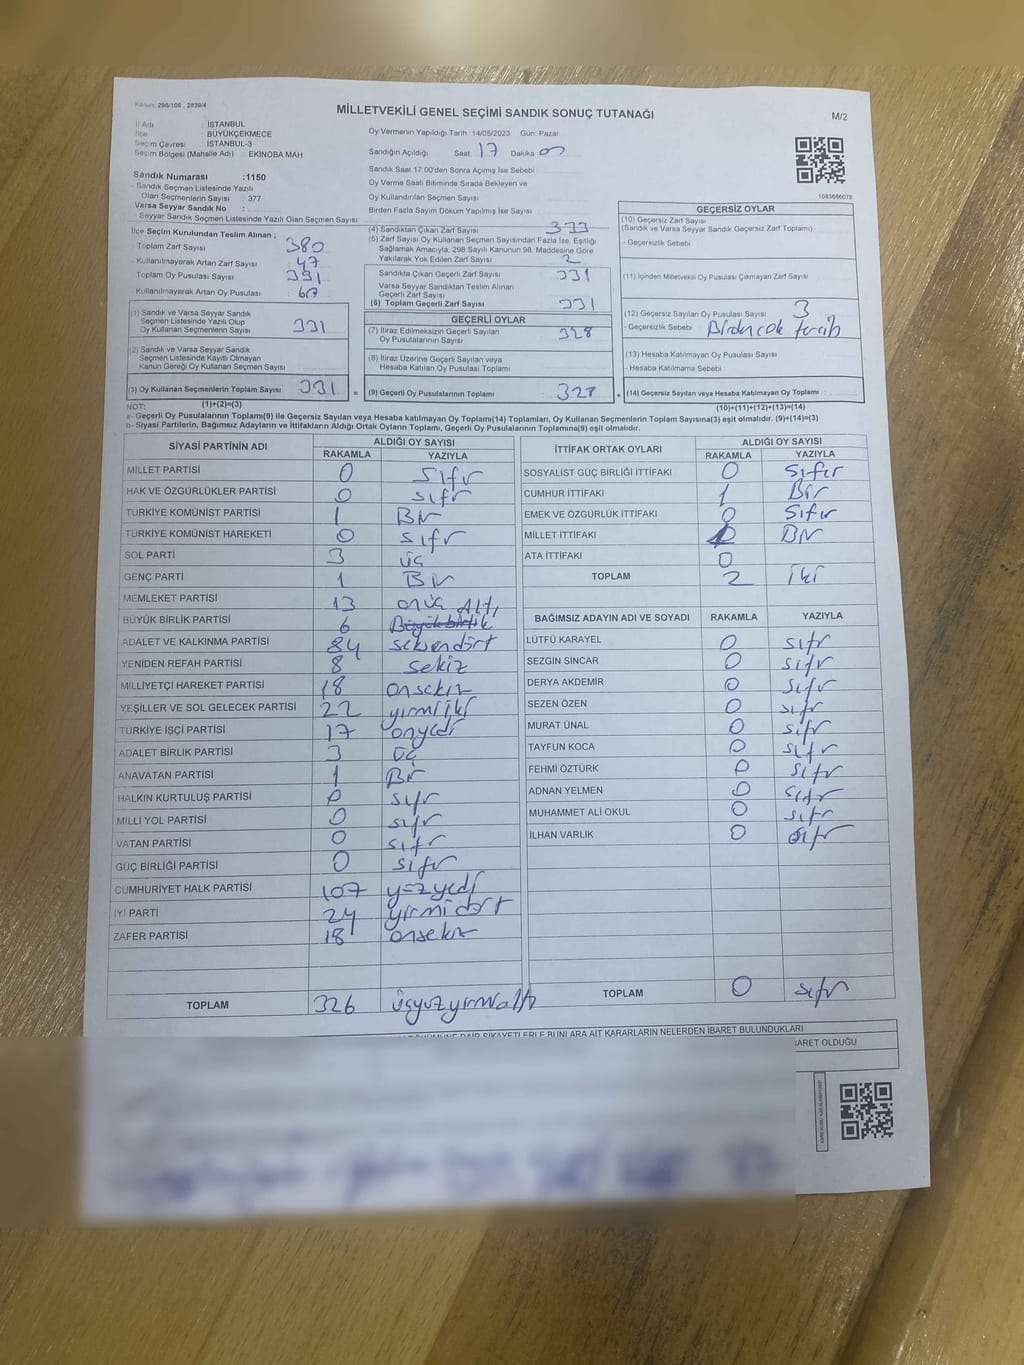 Kanun: 298/105 , 2839/4
MİLLETVEKİLİ GENEL SEÇİMİ SANDIK SONUÇ TUTANAĞI
M/2
İl Adı : İSTANBUL
İlçe : BÜYÜKÇEKMECE
Seçim Çevresi : İSTANBUL-3
Seçim Bölgesi (Mahalle Adı) : EKİNOBA MAH.
Sandık Numarası :1150
- Sandık Seçmen Listesinde Yazılı
Olan Seçmenlerin Sayısı : 377
Varsa Seyyar Sandık No :
- Seyyar Sandık Seçmen Listesinde Yazılı Olan Seçmen Sayısı
Oy Vermenin Yapıldığı Tarih :14/05/2023 Gün: Pazar
Sandığın Açıldığı Saat 17 Dakika 00
Sandık Saat 17.00'den Sonra Açımış İse Sebebi
Oy Verme Saati Bitiminde Sırada Bekleyen ve
Oy Kullandırılan Seçmen Sayısı
Birden Fazla Sayım Döküm Yapılmış İse Sayısı
1083686078
İlçe Seçim Kurulundan Teslim Alınan ;
- Toplam Zarf Sayısı 380
- Kullanılmayarak Artan Zarf Sayısı 47
- Toplam Oy Pusulası Sayısı 391
- Kullanılmayarak Artan Oy Pusulası 60
(1) Sandık ve Varsa Seyyar Sandık
Seçmen Listesinde Yazılı Olup
Oy Kullanan Seçmenlerin Sayısı 331
(2) Sandık ve Varsa Seyyar Sandık
Seçmen Listesinde Kayıtlı Olmayan
Kanun Gereği Oy Kullanan Seçmen Sayısı
(3) Oy Kullanan Seçmenlerin Toplam Sayısı 331
(1)+(2)=(3)
(4) Sandıktan Çıkan Zarf Sayısı 333
(5) Zarf Sayısı Oy Kullanan Seçmen Sayısından Fazla İse, Eşitliği
Sağlamak Amacıyla, 298 Sayılı Kanunun 98. Maddesine Göre
Yakılarak Yok Edilen Zarf Sayısı 2
Sandıkta Çıkan Geçerli Zarf Sayısı 331
Varsa Seyyar Sandıktan Teslim Alınan
Geçerli Zarf Sayısı
(6) Toplam Geçerli Zarf Sayısı 331
GEÇERLİ OYLAR
(7) İtiraz Edilmeksizin Geçerli Sayılan
Oy Pusulalarının Sayısı 328
(8) İtiraz Üzerine Geçerli Sayılan veya
Hesaba Katılan Oy Pusulası Toplamı
= (9) Geçerli Oy Pusulalarının Toplamı 328
GEÇERSİZ OYLAR
(10) Geçersiz Zarf Sayısı
(Sandık ve Varsa Seyyar Sandık Geçersiz Zarf Toplamı)
- Geçersizlik Sebebi
(11) İçinden Milletvekili Oy Pusulası Çıkmayan Zarf Sayısı
(12) Geçersiz Sayılan Oy Pusulası Sayısı 3
- Geçersizlik Sebebi Birden çok tercih
(13) Hesaba Katılmayan Oy Pusulası Sayısı
- Hesaba Katılmama Sebebi
+ (14) Geçersiz Sayılan veya Hesaba Katılmayan Oy Toplamı
(10)+(11)+(12)+(13)=(14)
NOT:
a- Geçerli Oy Pusulalarının Toplamı(9) ile Geçersiz Sayılan veya Hesaba katılmayan Oy Toplamı(14) Toplamları, Oy Kullanan Seçmenlerin Toplam Sayısına(3) eşit olmalıdır. (9)+(14)=(3)
b- Siyasi Partilerin, Bağımsız Adayların ve İttifakların Aldığı Ortak Oyların Toplamı, Geçerli Oy Pusulalarının Toplamına(9) eşit olmalıdır.
SİYASİ PARTİNİN ADI ALDIĞI OY SAYISI
RAKAMLA YAZIYLA
MİLLET PARTİSİ 0 Sıfır
HAK VE ÖZGÜRLÜKLER PARTİSİ 0 sıfır
TÜRKİYE KOMÜNİST PARTİSİ 1 Bir
TÜRKİYE KOMÜNİST HAREKETİ 0 sıfır
SOL PARTİ 3 üç
GENÇ PARTİ 1 Bir
MEMLEKET PARTİSİ 13 onüç
BÜYÜK BİRLİK PARTİSİ 6 Büyük birlik Altı
ADALET VE KALKINMA PARTİSİ 84 seksendört
YENİDEN REFAH PARTİSİ 8 sekiz
MİLLİYETÇİ HAREKET PARTİSİ 18 onsekiz
YEŞİLLER VE SOL GELECEK PARTİSİ 22 yirmiiki
TÜRKİYE İŞÇİ PARTİSİ 17 onyedi
ADALET BİRLİK PARTİSİ 3 üç
ANAVATAN PARTİSİ 1 Bir
HALKIN KURTULUŞ PARTİSİ 0 sıfır
MİLLİ YOL PARTİSİ 0 sıfır
VATAN PARTİSİ 0 sıfır
GÜÇ BİRLİĞİ PARTİSİ 0 sıfır
CUMHURİYET HALK PARTİSİ 107 yüzyedi
İYİ PARTİ 24 yirmidört
ZAFER PARTİSİ 18 onsekiz
TOPLAM 326 üçyüzyirmialtı
İTTİFAK ORTAK OYLARI ALDIĞI OY SAYISI
RAKAMLA YAZIYLA
SOSYALİST GÜÇ BİRLİĞİ İTTİFAKI 0 Sıfır
CUMHUR İTTİFAKI 1 Bir
EMEK VE ÖZGÜRLÜK İTTİFAKI 0 Sıfır
MİLLET İTTİFAKI 1 Bir
ATA İTTİFAKI 0
TOPLAM 2 iki
BAĞIMSIZ ADAYIN ADI VE SOYADI RAKAMLA YAZIYLA
LÜTFÜ KARAYEL 0 sıfır
SEZGİN SİNCAR 0 sıfır
DERYA AKDEMİR 0 sıfır
SEZEN ÖZEN 0 sıfır
MURAT ÜNAL 0 sıfır
TAYFUN KOCA 0 sıfır
FEHMİ ÖZTÜRK 0 sıfır
ADNAN YELMEN 0 sıfır
MUHAMMET ALİ OKUL 0 sıfır
İLHAN VARLIK 0 sıfır
TOPLAM 0 sıfır
DÖKÜMÜNE DAİR ŞİKAYETLERLE BUNLARA AİT KARARLARIN NELERDEN İBARET BULUNDUKLARI
İBARET OLDUĞU